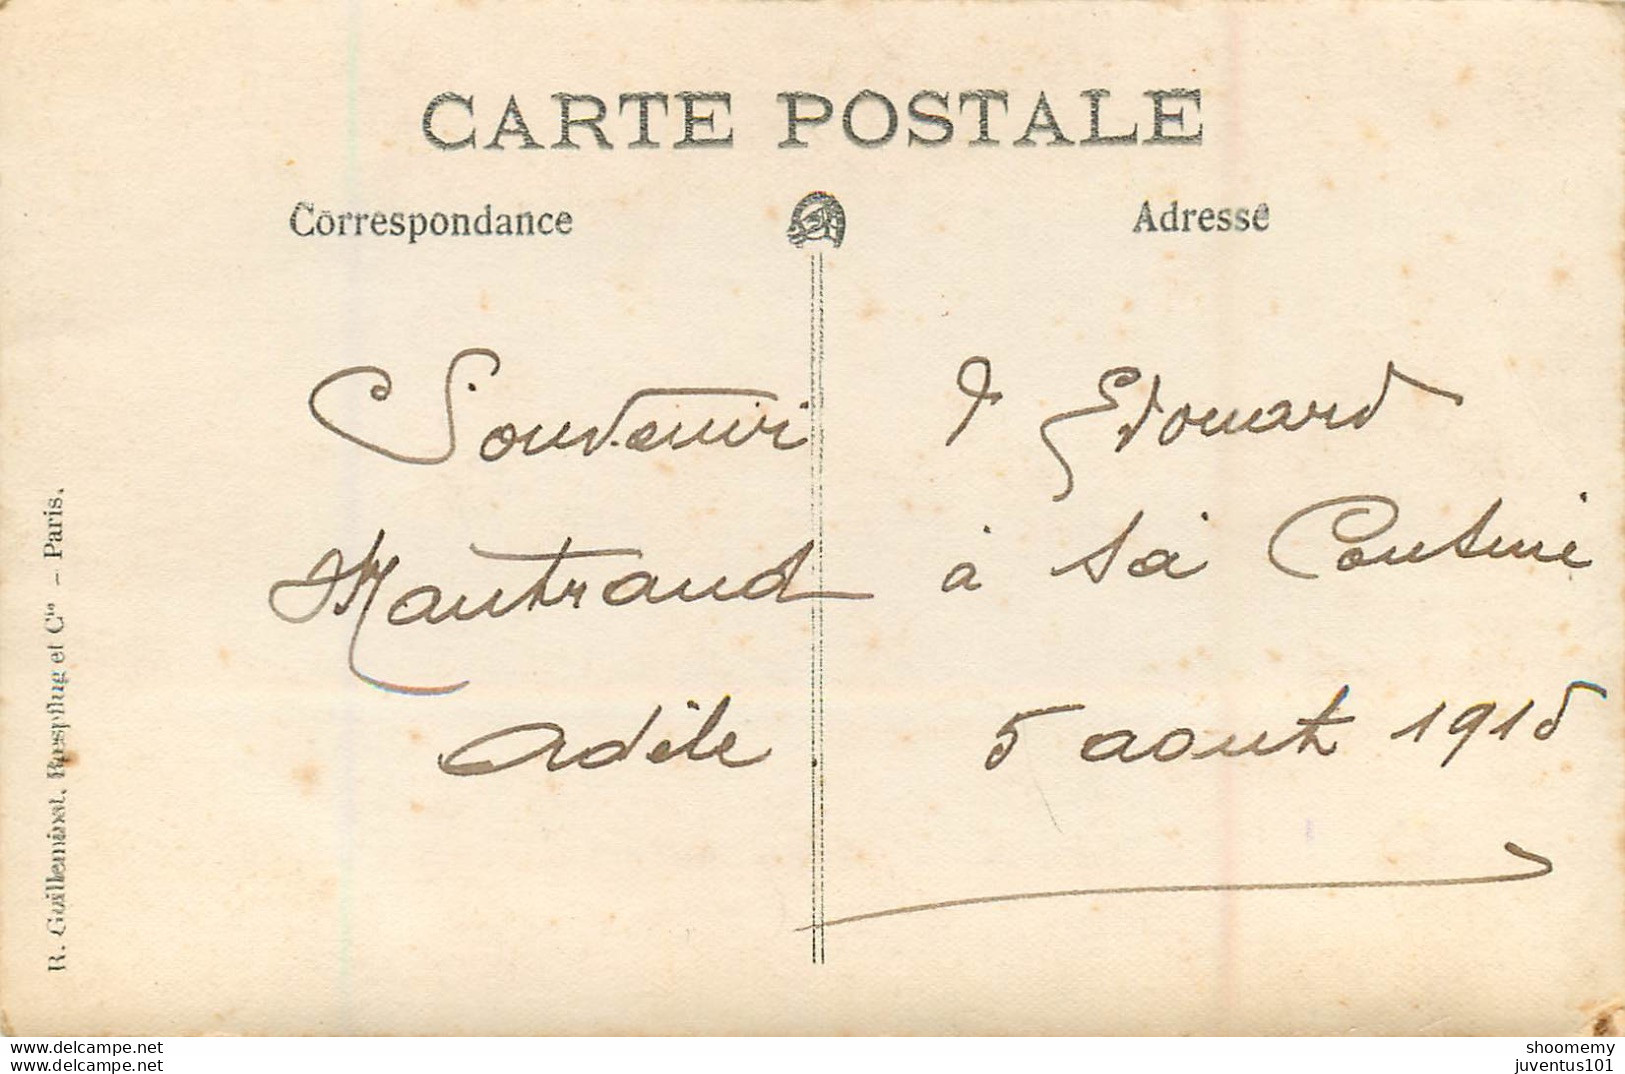 CARTE POSTALE
Correspondance
Adresse
Souvenir d'Edouard
Mautrand à sa Cousine
Adèle. 5 aout 1915
R. Guilleminot, Bœspflug et Cie – Paris.
www.delcampe.net
www.delcampe.net
shoomemy
juventus101